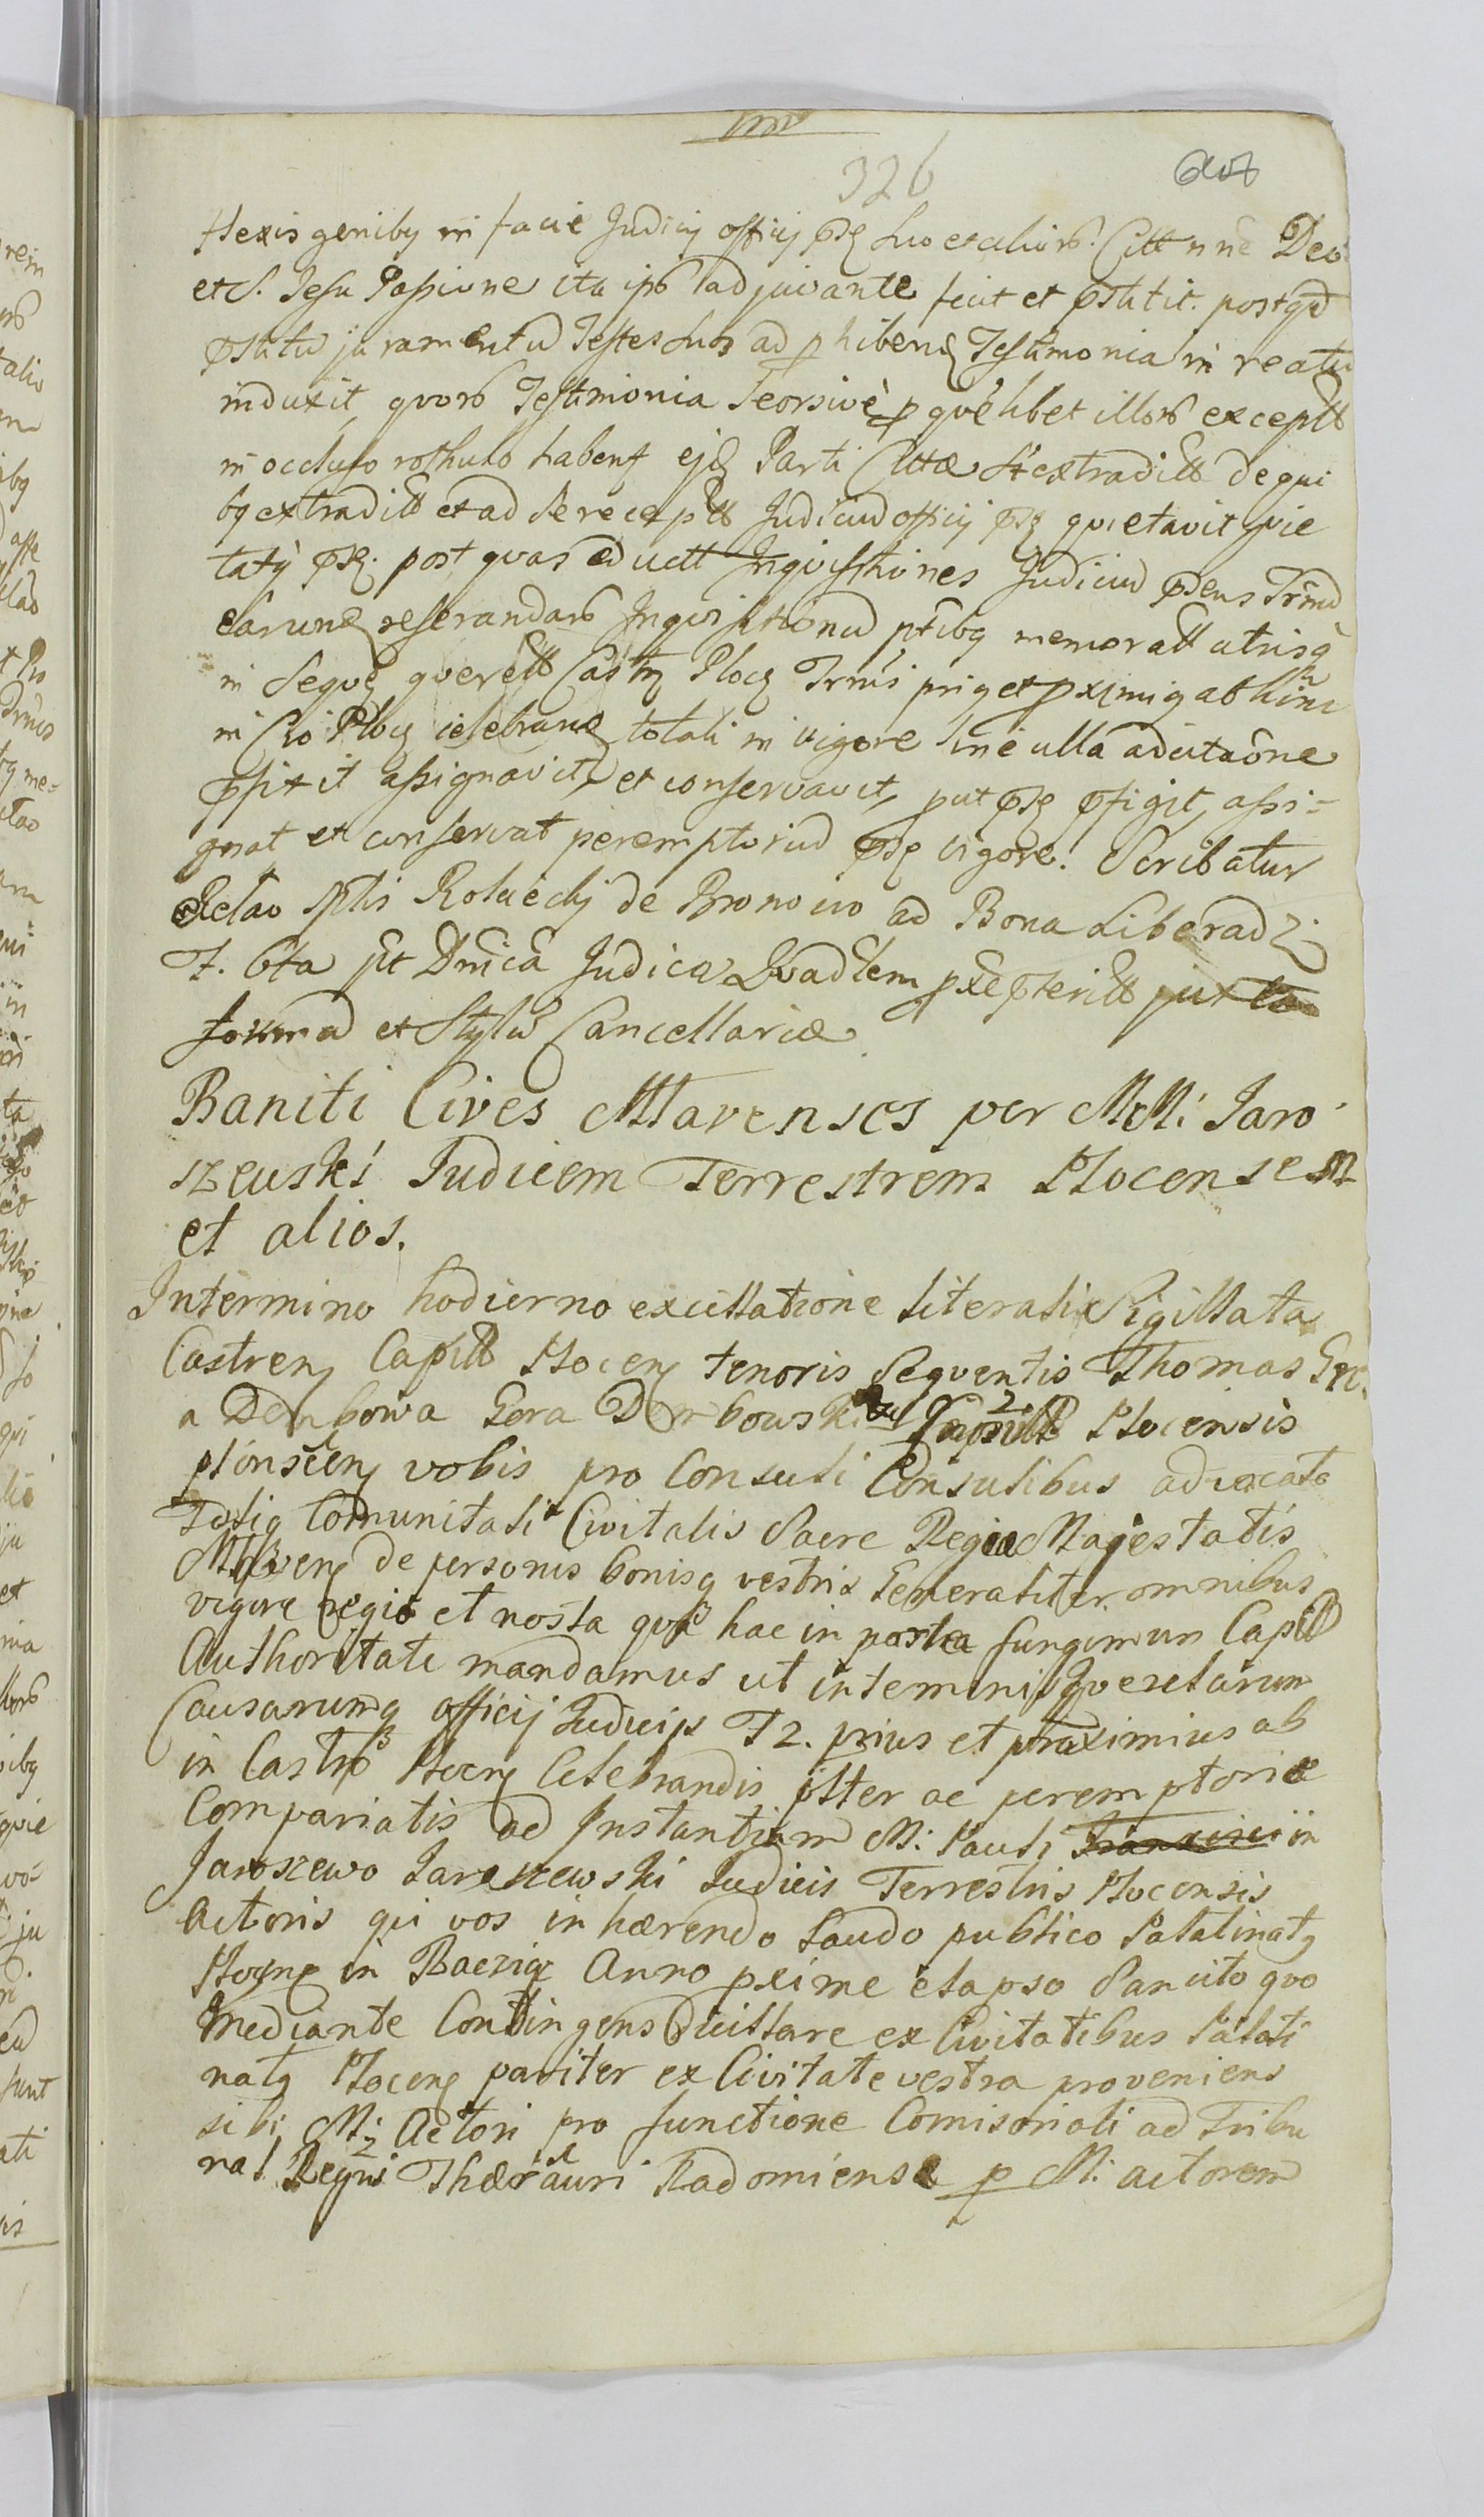 326
flexis genibq in facie Judicij officij pñtz suo et aliorũ Citt nñe Dei
et S. Jesu Passione ita ipsõ adjuvante fecit et pstitit. postqd
pstitũ juramentũ Testes suos ad phibenđ Testimonia in reatu
induxit, quorũ Testimonia seorsivè p quelibet illorũ exceptt
in occluso rothulo habent ejđ Parti Cittæ st extraditt de qui
bq extraditt et ad se receptt Judiciũ officij psz quietavit quie
tatq psz. post quas eductt Inquisitiones Judiciũ psens Trmũ
earunđ reserandarũ Inquisitionũ ptibq memoratt utrisq
in Sequen querelt Castrz Plocz Trmis priq et pximiq ab hinc
in Cro Plocz celebranđ totali in vigore sine ulla adcitaõne
pfixit assignavit, et conservavit, put psz pfigit, assi=
gnat et conservat peremptoriũ psz vigore. Scribatur
Relao Sptis Rokicckij de Bronowo ad Bona Liberadz.
F. 6ta pt Dnica Judica Quadlem pxe pteritt juxta
formã et Stylũ Cancellariæ
Baniti Cives Mlavenses per M. M: Jaro
szewski Judicem Terrestrem Plocensem
et alios.
In termino hodierno ex citatione literali Sigillata
Castren Capitt Plocen tenoris Sequentis Thomas Grc.
a Dembowa Gora Dembowski Capitt Plocensis
plonscen vobis pro Consuli Consulibus advocato
Totiq Comunitati Civitatis Sacre Regiæ Majestatis
Mlaven de personis bonisq vestris Generaliter omnibus
vigore regio et nostra qua hac in parte fungimur Capitt
Authoritate mandamus ut in termini Querelarum
Causarumq officij Judicijs F 2. prius et proximius ab
in Castro Plocen Celebrandis plter ac peremptorie
Compariatis ad Instantiam M: Pauli in
Jaroszewo Jaroszewski Judicis Terrestris Plocensis
Actoris qui vos in hærendo Laudo publico Palatinatq
Plocen in Raciąz Anno pxime elapso Sancito quo
mediante Contingens Ducillare ex Civitatibus Palati
natq Plocen pariter ex Civitate vestra proveniens
sibi M: Actori pro functione Comisoriali ad Tribu
nal Regni Thæsauri Radomiense p M: actorem